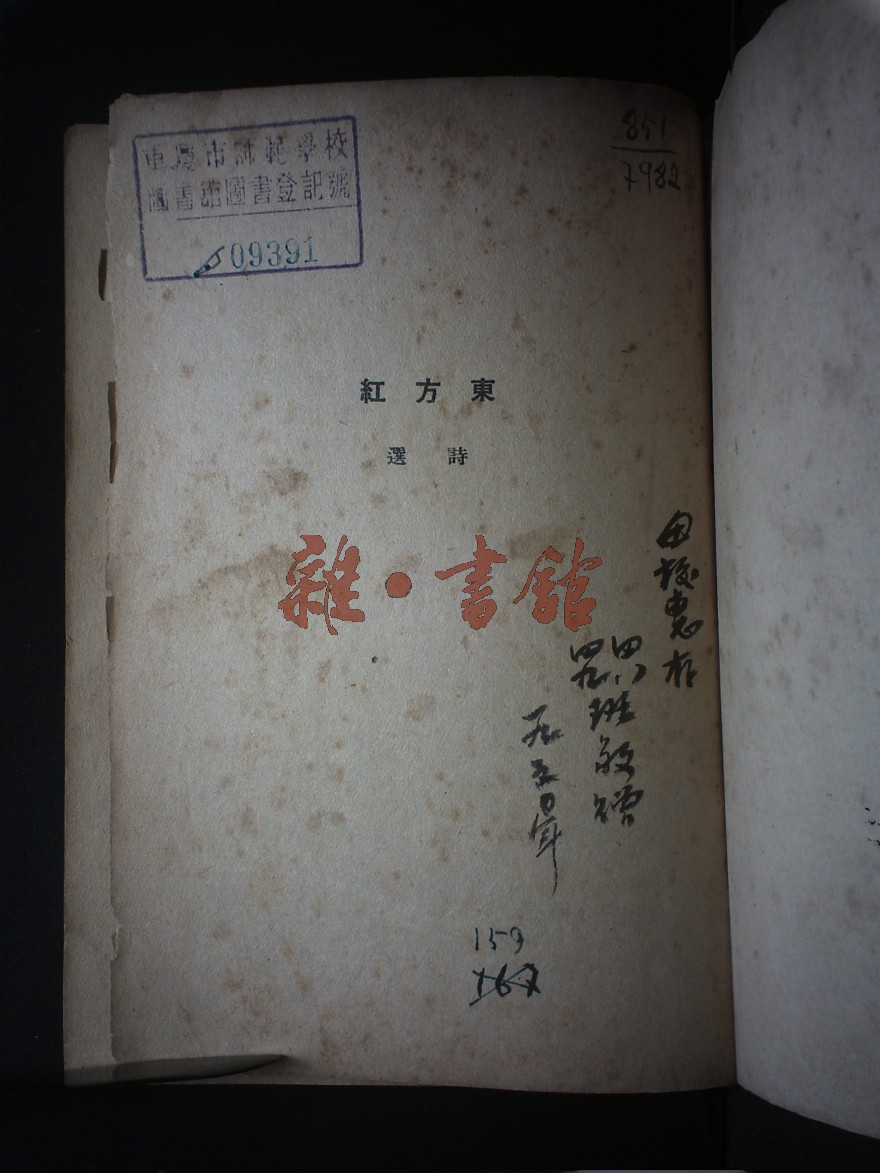 重慶市師範學校
圖書館圖書登記號
09391
851
7982
東方紅
詩選
雜·書館
母校惠存
四八
四九
班敬贈
159
167